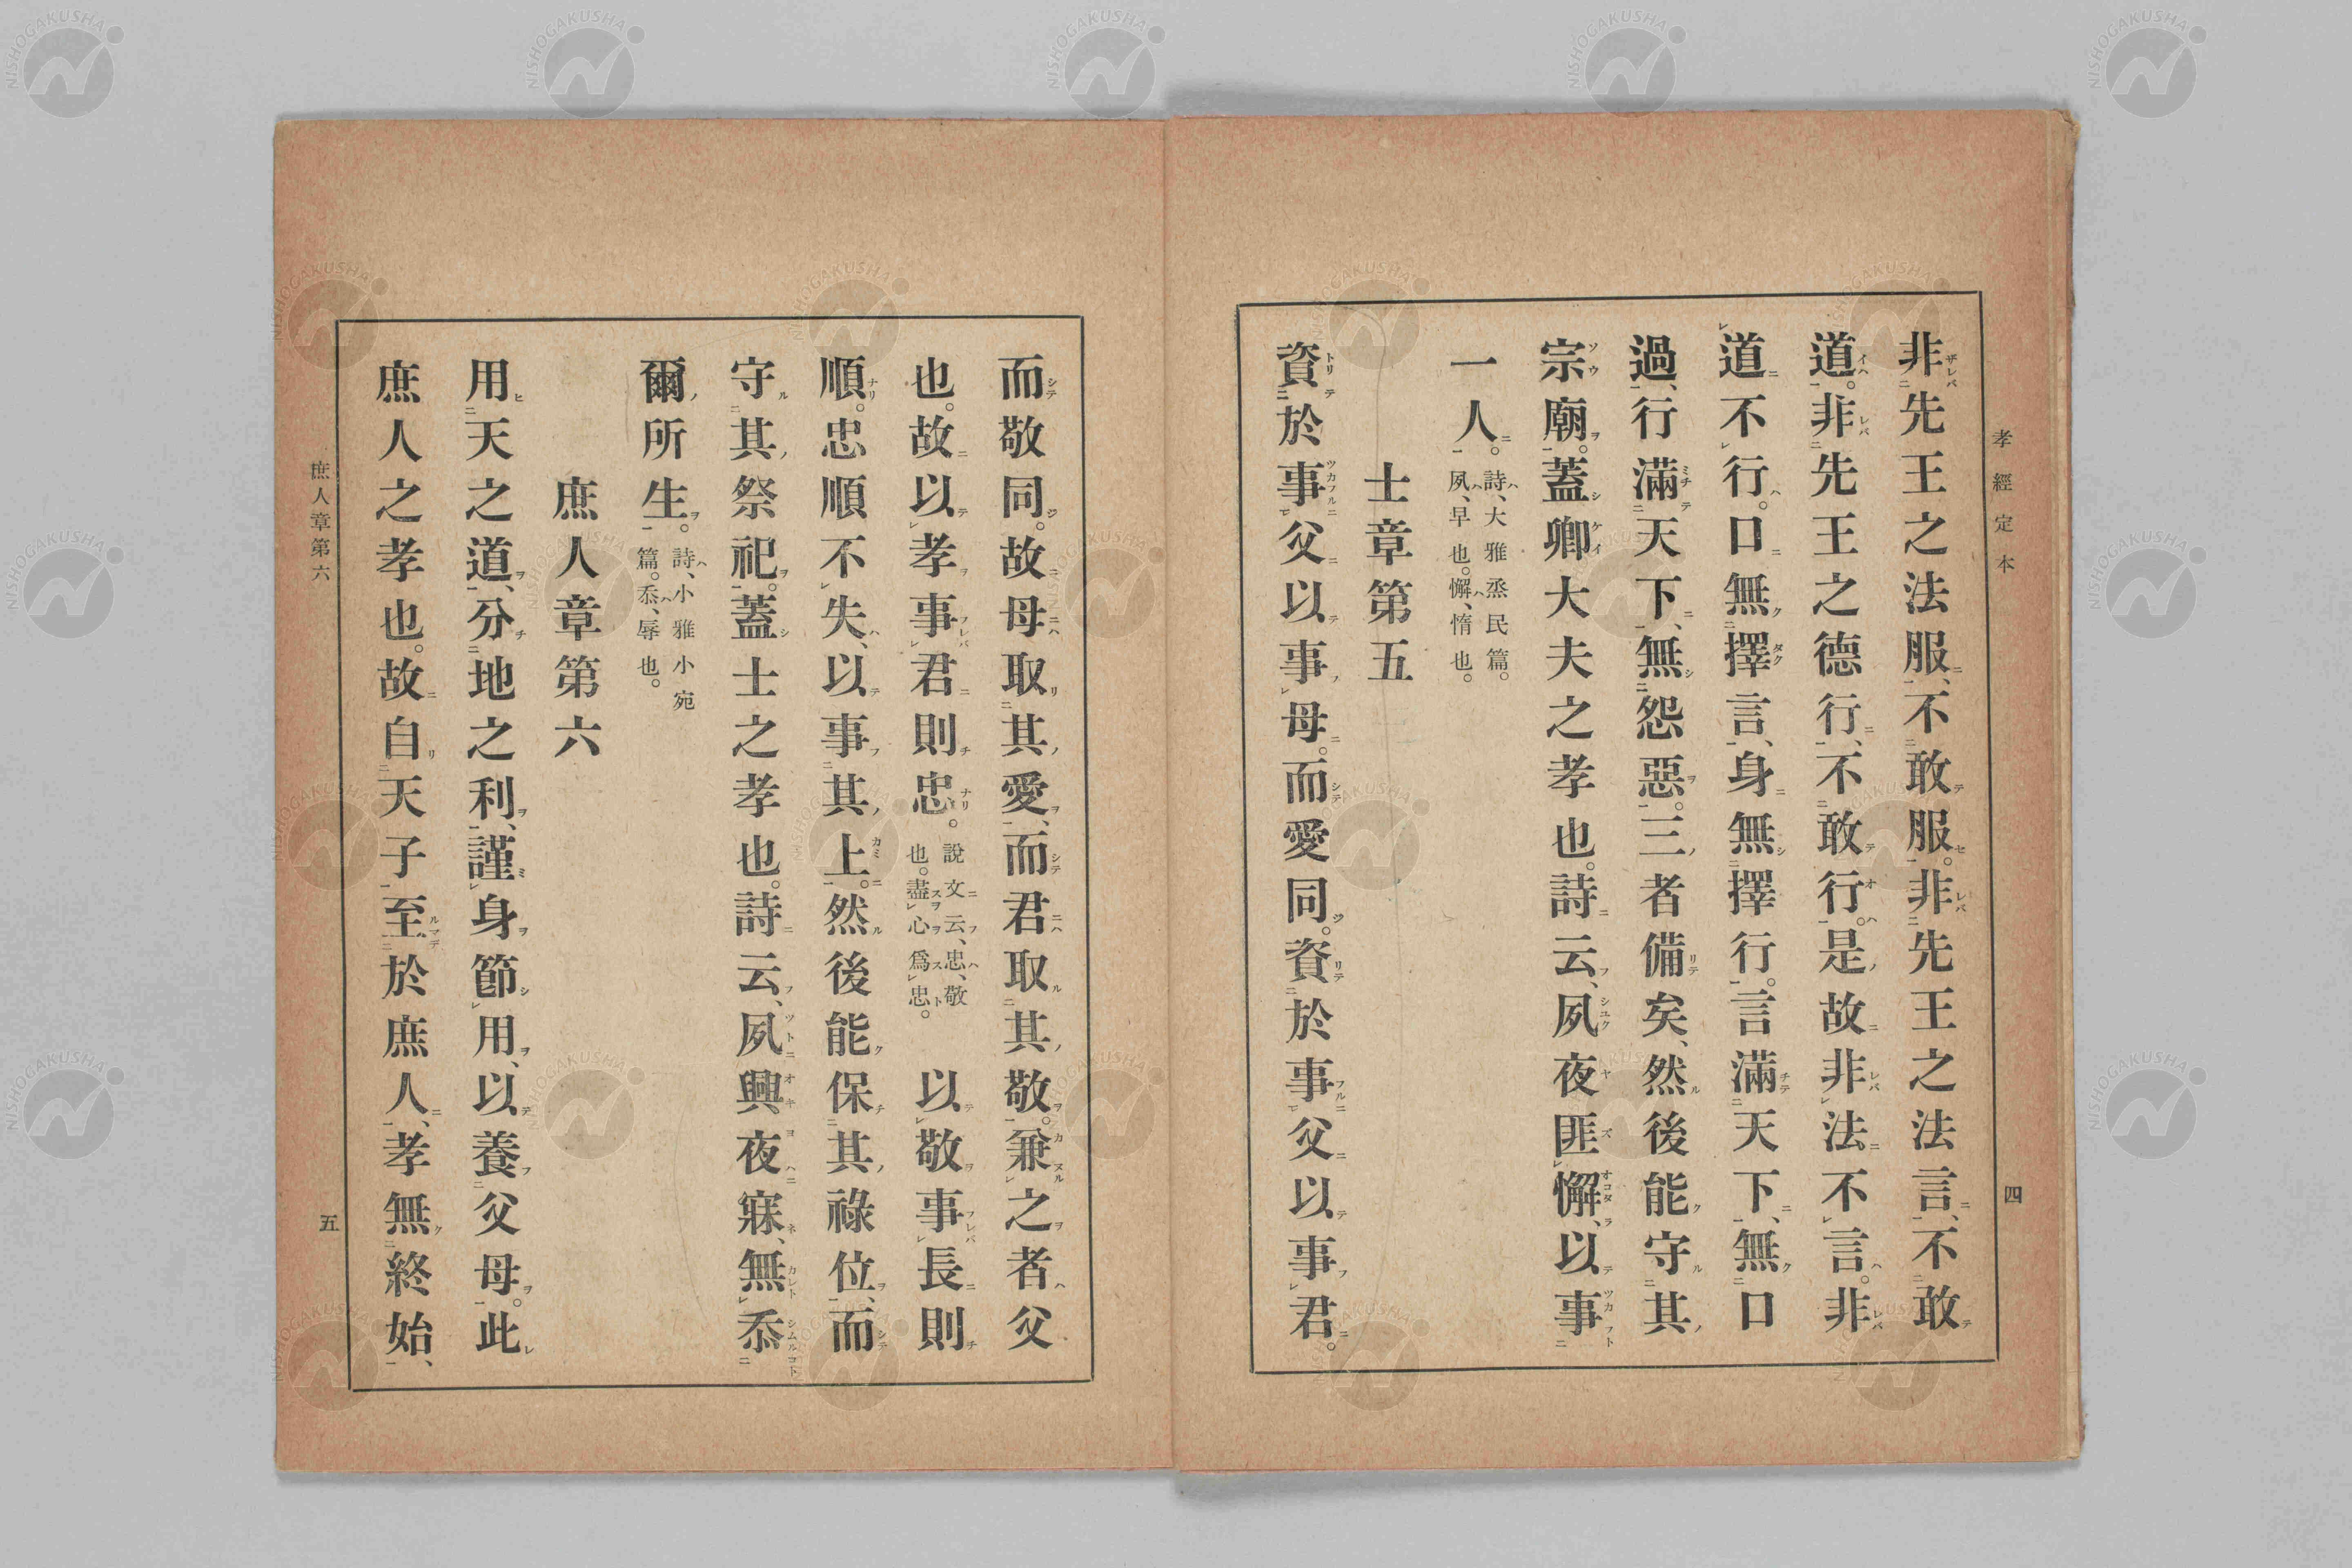 孝經定本
四
非先王之法服、不敢服。非先王之法言、不敢
道。非先王之德行、不敢行。是故非法不言。非
道不行。口無擇言、身無擇行。言滿天下、無口
過、行滿天下、無怨惡。三者備矣、然後能守其
宗廟。蓋卿大夫之孝也。詩云、夙夜匪懈、以事
一人。詩、大雅烝民篇。
夙、早也。懈、惰也。
士章第五
資於事父以事母。而愛同。資於事父以事君。
而敬同。故母取其愛、而君取其敬。兼之者父
也。故以孝事君則忠。說文云、忠、敬
也。盡心爲忠。以敬事長則
順。忠順不失、以事其上。然後能保其祿位、而
守其祭祀。蓋士之孝也。詩云、夙興夜寐、無忝
爾所生。詩、小雅小宛
篇。忝、辱也。
庶人章第六
用天之道、分地之利、謹身節用、以養父母。此
庶人之孝也。故自天子至於庶人、孝無終始、
庶人章第六
五
NISHOGAKUSHA